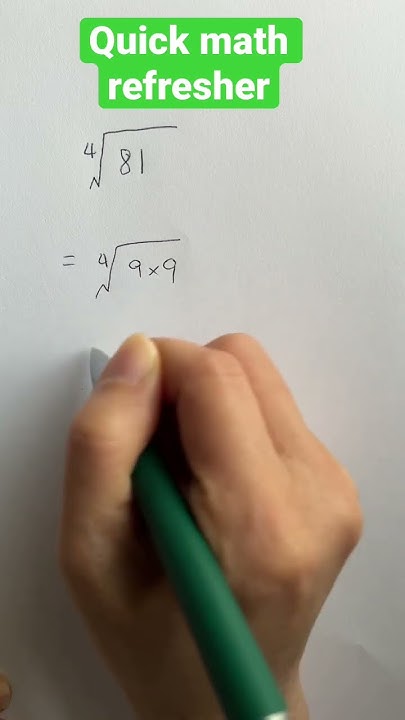 Quick math
refresher
⁴√81
= ⁴√9×9